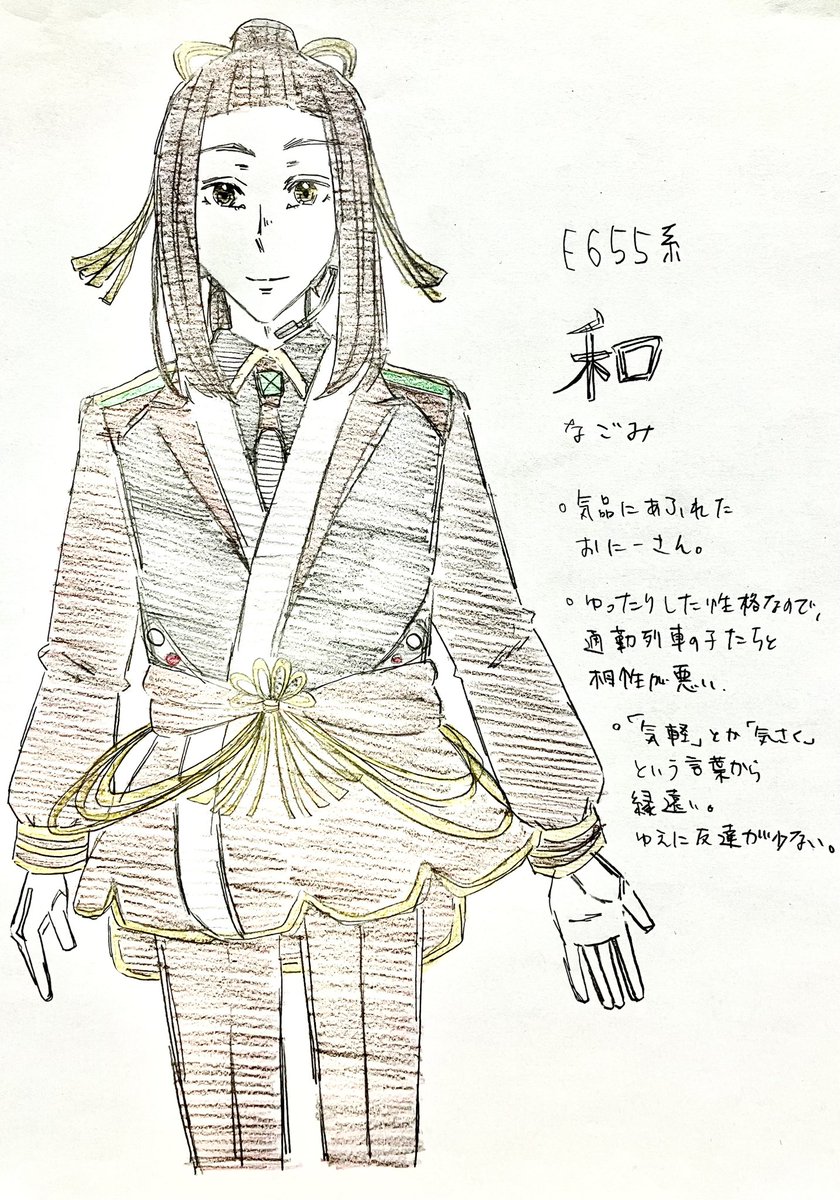 E655系
和
なごみ
○気品にあふれた
おにーさん。
○ゆったりした性格なので、
通勤列車の子たちと
相性が悪い。
○「気軽」とか「気さく」
という言葉から
縁遠い。
ゆえに友達が少ない。